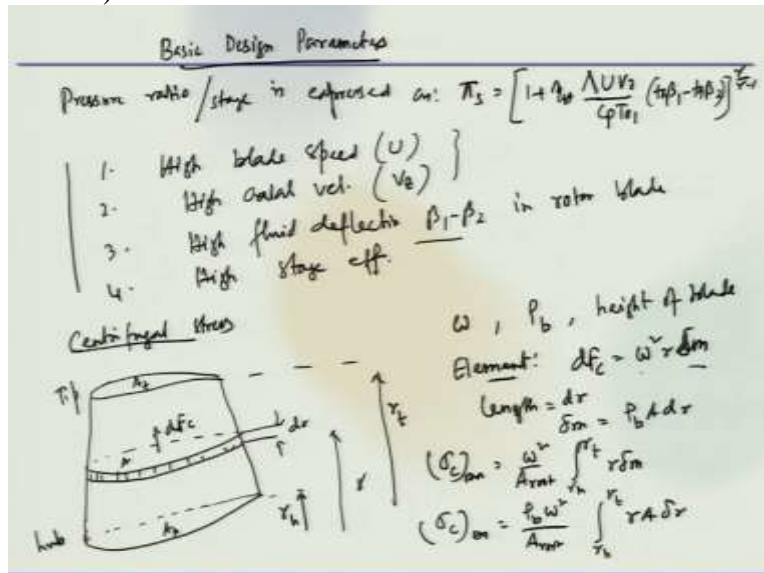 Basic Design Parameters
Pressure ratio/stage is expressed as: π_s = [1 + η_st ΛUV_z/(c_pT_01) (tanβ_1 - tanβ_2)]^{γ/γ-1}
1. High blade speed (U)
2. High axial vel. (V_z)
3. High fluid deflection β_1-β_2 in rotor blade
4. High stage eff.
Centrifugal stress
ω, ρ_b, height of blade
Element: dF_c = ω²r δm
Length = dr
δm = ρ_b A dr
(σ_c) = ω²/A_root ∫_{r_h}^{r_t} r δm
(σ_c) = ρ_b ω²/A_root ∫_{r_h}^{r_t} r A δr
Tip
A_t
dF_c
dr
A
r_t
r
r_h
hub